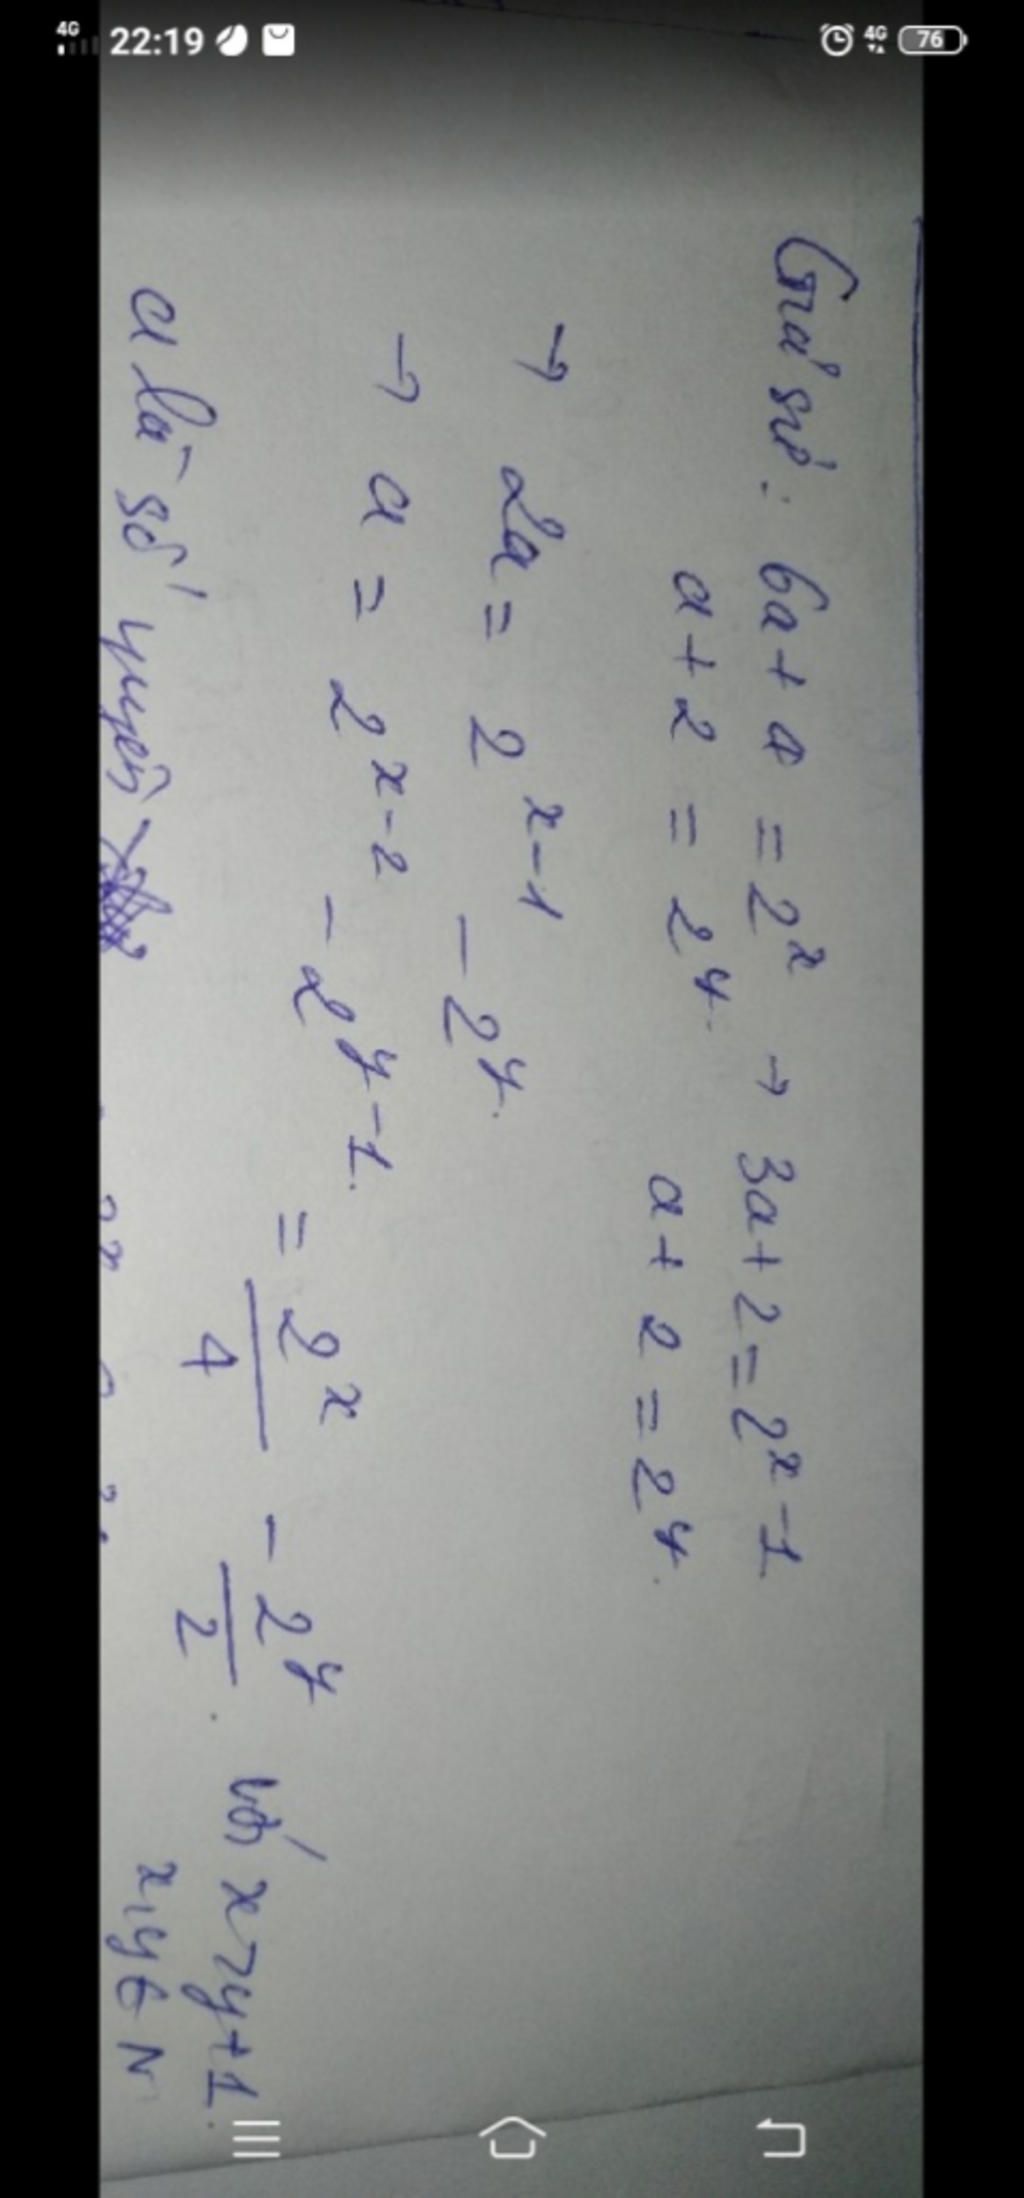 4G 22:19 4G 76
Giả sử: 6a + 4 = 2^x → 3a + 2 = 2^x-1
a + 2 = 2^y. a + 2 = 2^y.
→ 2a = 2^x-1 - 2^y.
→ a = 2^x-2 - 2^y-1. = 2^x/4 - 2^y/2. với x > y + 1.
x, y ∈ N
a là số nguyên